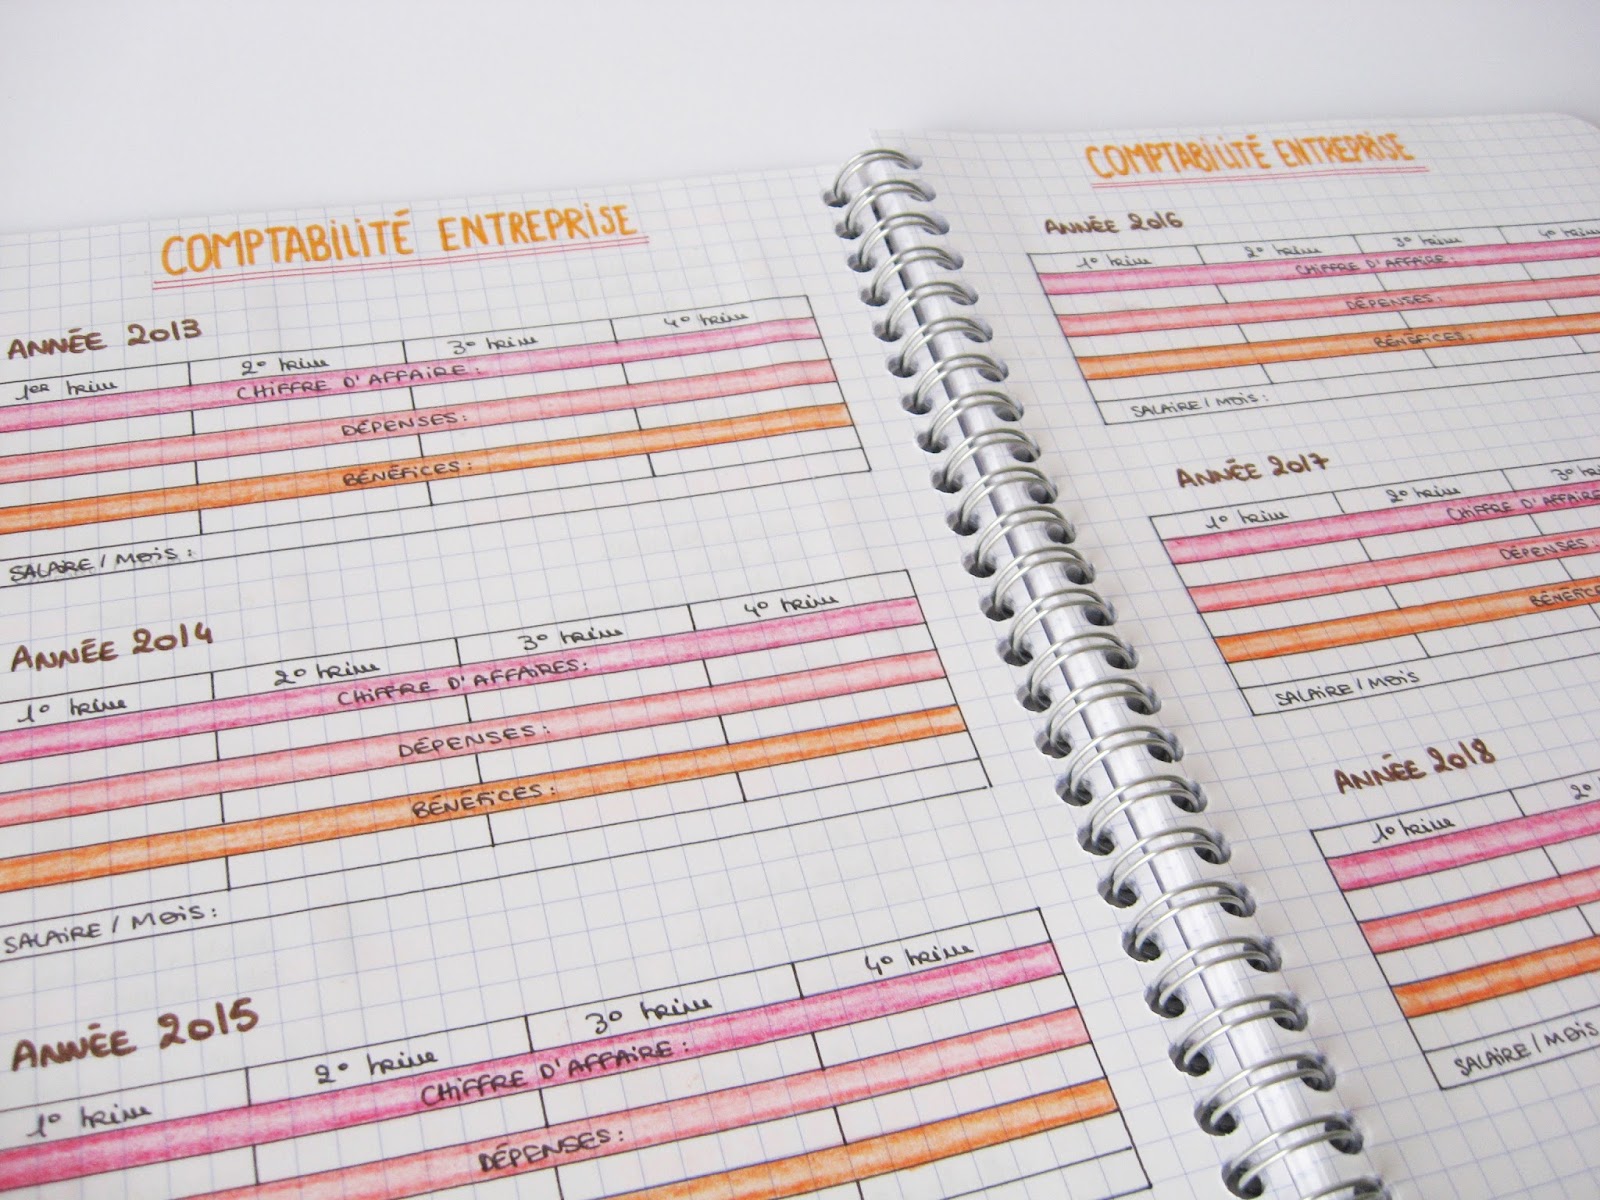 COMPTABILITÉ ENTREPRISE
ANNÉE 2013
1er trim 2° trim 3° trim 4° trim
CHIFFRE D'AFFAIRE :
DÉPENSES:
BÉNÉFICES:
SALAIRE / MOIS :
ANNÉE 2014
1° trim 2° trim 3° trim 4° trim
CHIFFRE D'AFFAIRES:
DÉPENSES:
BÉNÉFICES:
SALAIRE / MOIS:
ANNÉE 2015
1° trim 2° trim 3° trim 4° trim
CHIFFRE D'AFFAIRE :
DÉPENSES:
COMPTABILITÉ ENTREPRISE
ANNÉE 2016
1° trim 2° trim 3° trim 4° trim
CHIFFRE D'AFFAIRE:
DÉPENSES:
BÉNÉFICES:
SALAIRE / MOIS:
ANNÉE 2017
1° trim 2° trim 3°
CHIFFRE D'AFFAIRE
DÉPENSES:
BÉNÉFICE
SALAIRE / MOIS
ANNÉE 2018
1° trim 2°
SALAIRE / MOIS